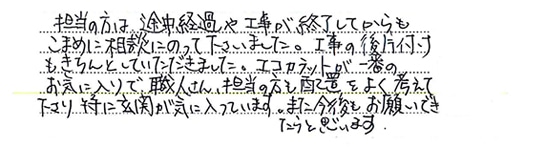 担当の方は、途中経過や工事が終了してからも
こまめに相談にのって下さいました。工事の後片付け
もきちんとしていただきました。エコカラットが一番の
お気に入りで、職人さん、担当の方も配置をよく考えて
下さり、特に玄関が気に入っています。また今後もお願いでき
たらと思います。